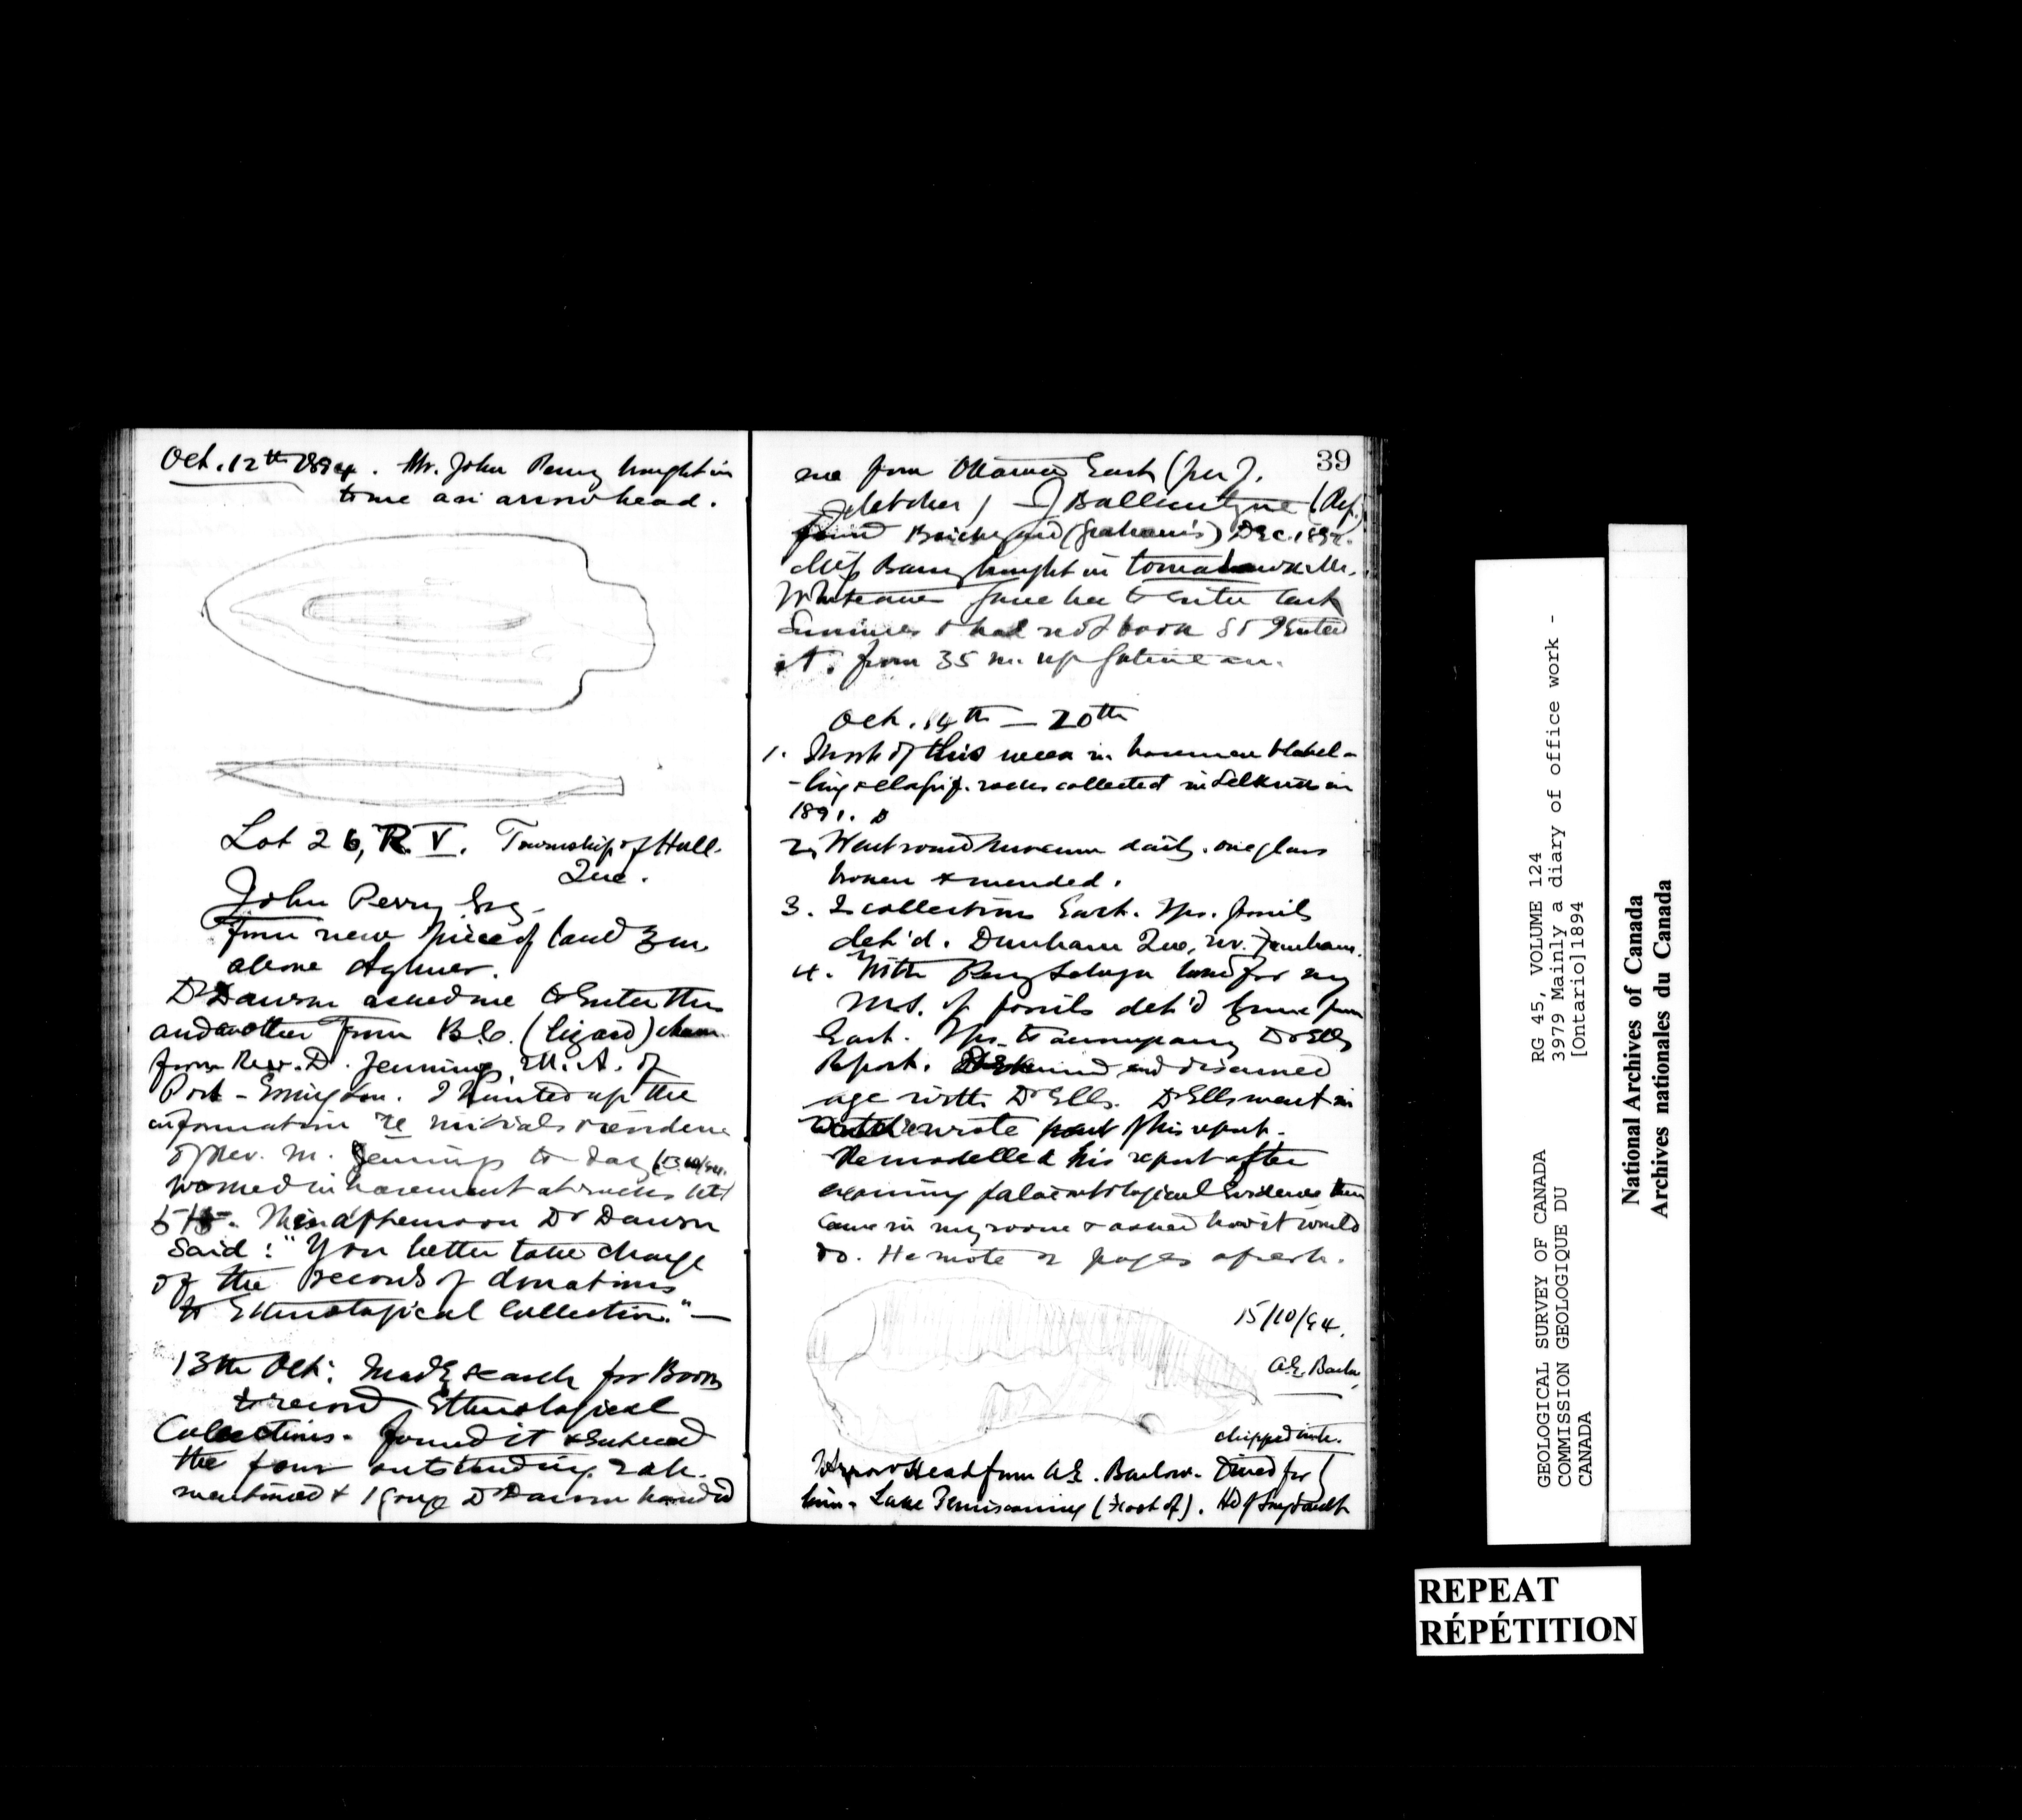 Oct. 12th 1894. Mr. John Perry brought in
to me an arrowhead.
Lot 26, R. V. Township of Hull.
Que.
John Perry Esq.
From new piece of land 3 m
above Aylmer.
Dr Dawson asked me to enter this
and another from B.C. (lizard) charm
from Rev. D. Jennings, M.A. of
Port-Essington. I hunted up the
information re initials & residence
of Rev. M. Jennings to day (13.10/94.
Worked in basement at rocks till
5. This afternoon Dr Dawson
said: "You better take charge
of the records of donations
to Ethnological Collection." —
13th Oct: Made search for Book
to record Ethnological
Collections. found it & entered
the four outstanding. 2 ab.
mentioned & 1 gouge Dr Dawson handed
39
me from Ottawa East (per J.
Fletcher) J Ballantyne (Ref.)
found Brickyard (Graham's) Dec. 189
Miss Barry brought in tomahawk Mr.
Whiteaves gave her to enter last
Summer & had not book so I entered
it. from 35 m. up Gatineau.
Oct. 14th — 20th
1. Most of this week in basement label-
-ling & classif. rocks collected in Selkirks in
1891.
2. Went round Museum daily. one glass
broken & mended.
3. 2 collections East. Tps. fossils
det'd. Dunham Que, nr. Farnham.
4. With for my
MS. of fossils det'd by me from
East. Tps. to accompany Dr Ells
Report. and discussed
age with Dr Ells. Dr Ells went in
wrote part of his report.
Remodelled his report after
examining palaeontological Evidence then
came in my room & asked how it would
do. He wrote 2 pages afresh.
15/10/94.
A.E. Barlow
chipped
Arrow Head from A.E. Barlow. for
him. Lake Temiscaming (Foot of).
GEOLOGICAL SURVEY OF CANADA
COMMISSION GEOLOGIQUE DU
CANADA
RG 45, VOLUME 124
3979 Mainly a diary of office work -
[Ontario]1894
National Archives of Canada
Archives nationales du Canada
REPEAT
RÉPÉTITION